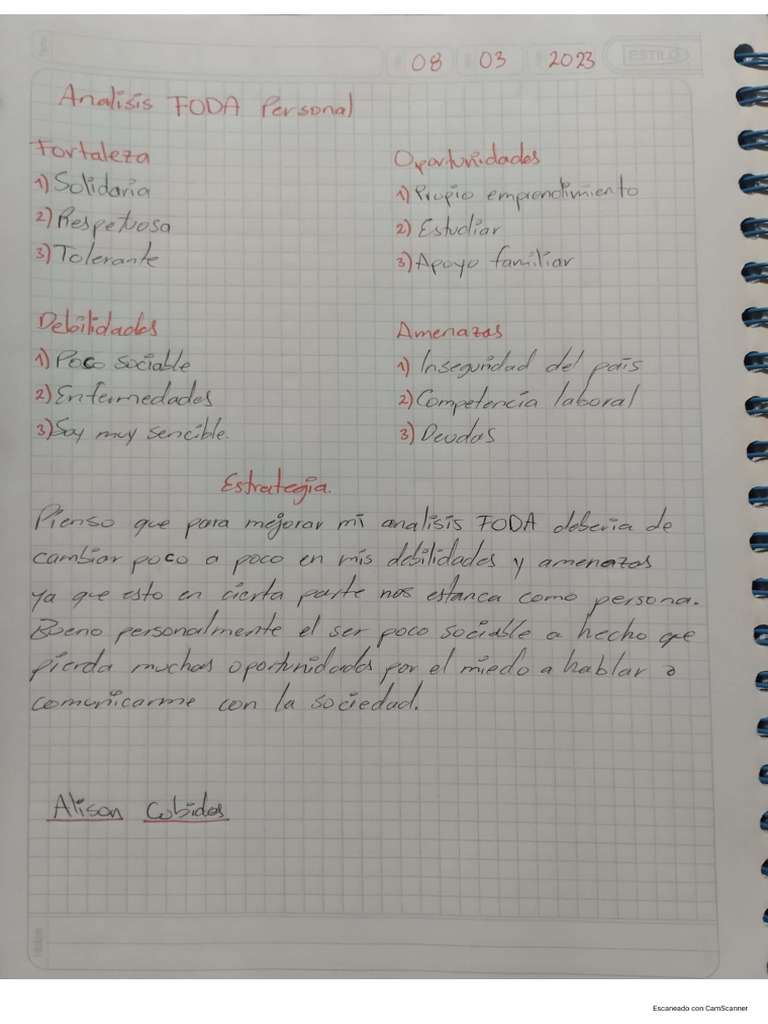 08 03 2023
ESTILO
Analisis FODA Personal
Fortaleza
1) Solidaria
2) Respetuosa
3) Tolerante
Oportunidades
1) Propio emprendimiento
2) Estudiar
3) Apoyo familiar
Debilidades
1) Poco sociable
2) Enfermedades
3) Soy muy sencible.
Amenazas
1) Inseguridad del país
2) Competencia laboral
3) Deudas
Estrategia.
Pienso que para mejorar mi analisis FODA deberia de
cambiar poco a poco en mis debilidades y amenazas
ya que esto en cierta parte nos estanca como persona.
Bueno personalmente el ser poco sociable a hecho que
pierda muchas oportunidades por el miedo a hablar o
comunicarme con la sociedad.
Alison Cubides
Notes
Escaneado con CamScanner